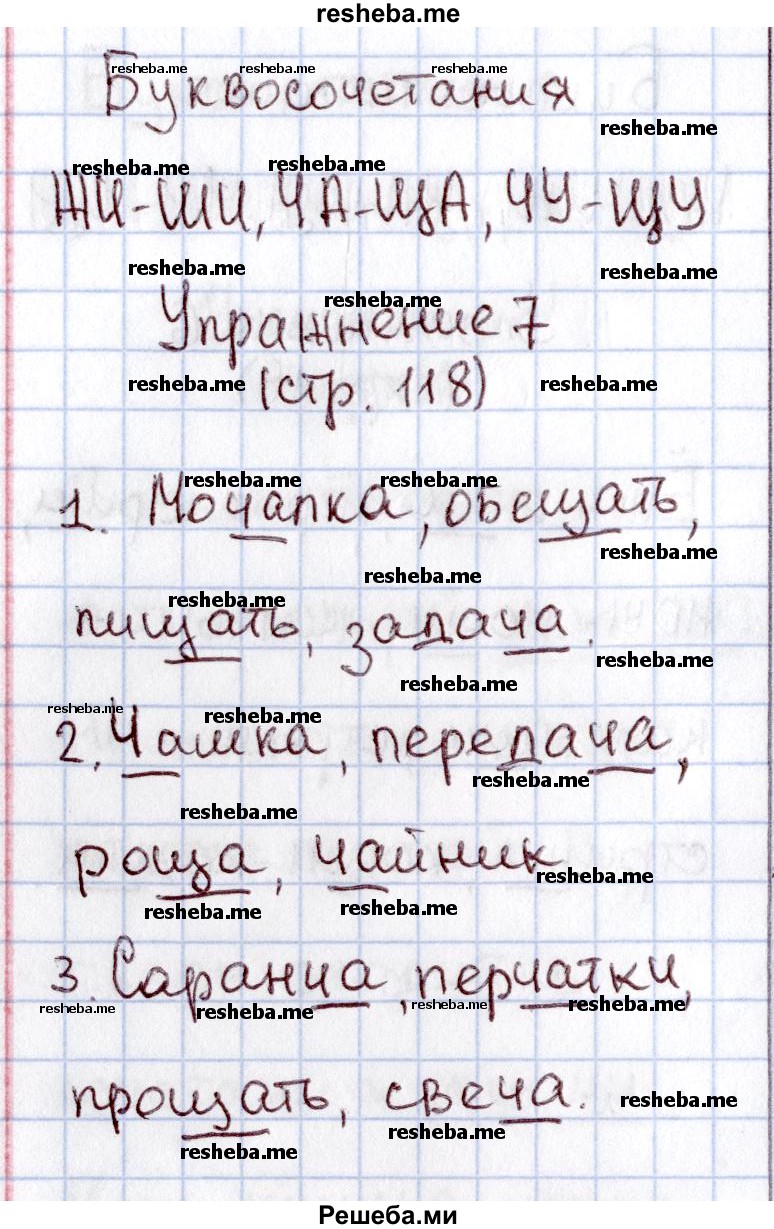 resheba.me
Буквосочетания
ЖИ-ШИ, ЧА-ЩА, ЧУ-ЩУ
Упражнение 7
(стр. 118)
1. Мочалка, обещать,
пищать, задача.
2. Чашка, передача,
роща, чайник
3. Саранча, перчатки,
прощать, свеча.
Решеба.ми